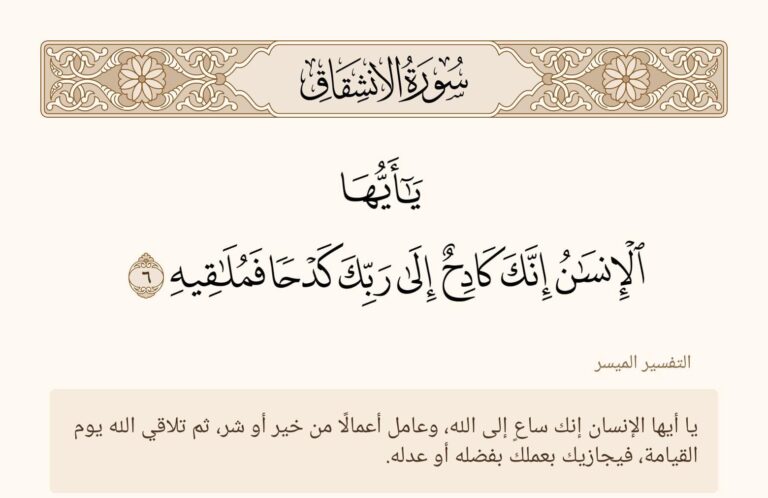 سُورَةُ الانشِقَاقِ
يَـٰٓأَيُّهَا
ٱلْإِنسَـٰنُ إِنَّكَ كَادِحٌ إِلَىٰ رَبِّكَ كَدْحًا فَمُلَـٰقِيهِ ٦
التفسير الميسر
يا أيها الإنسان إنك ساعٍ إلى الله، وعامل أعمالًا من خير أو شر، ثم تلاقي الله يوم
القيامة، فيجازيك بعملك بفضله أو عدله.